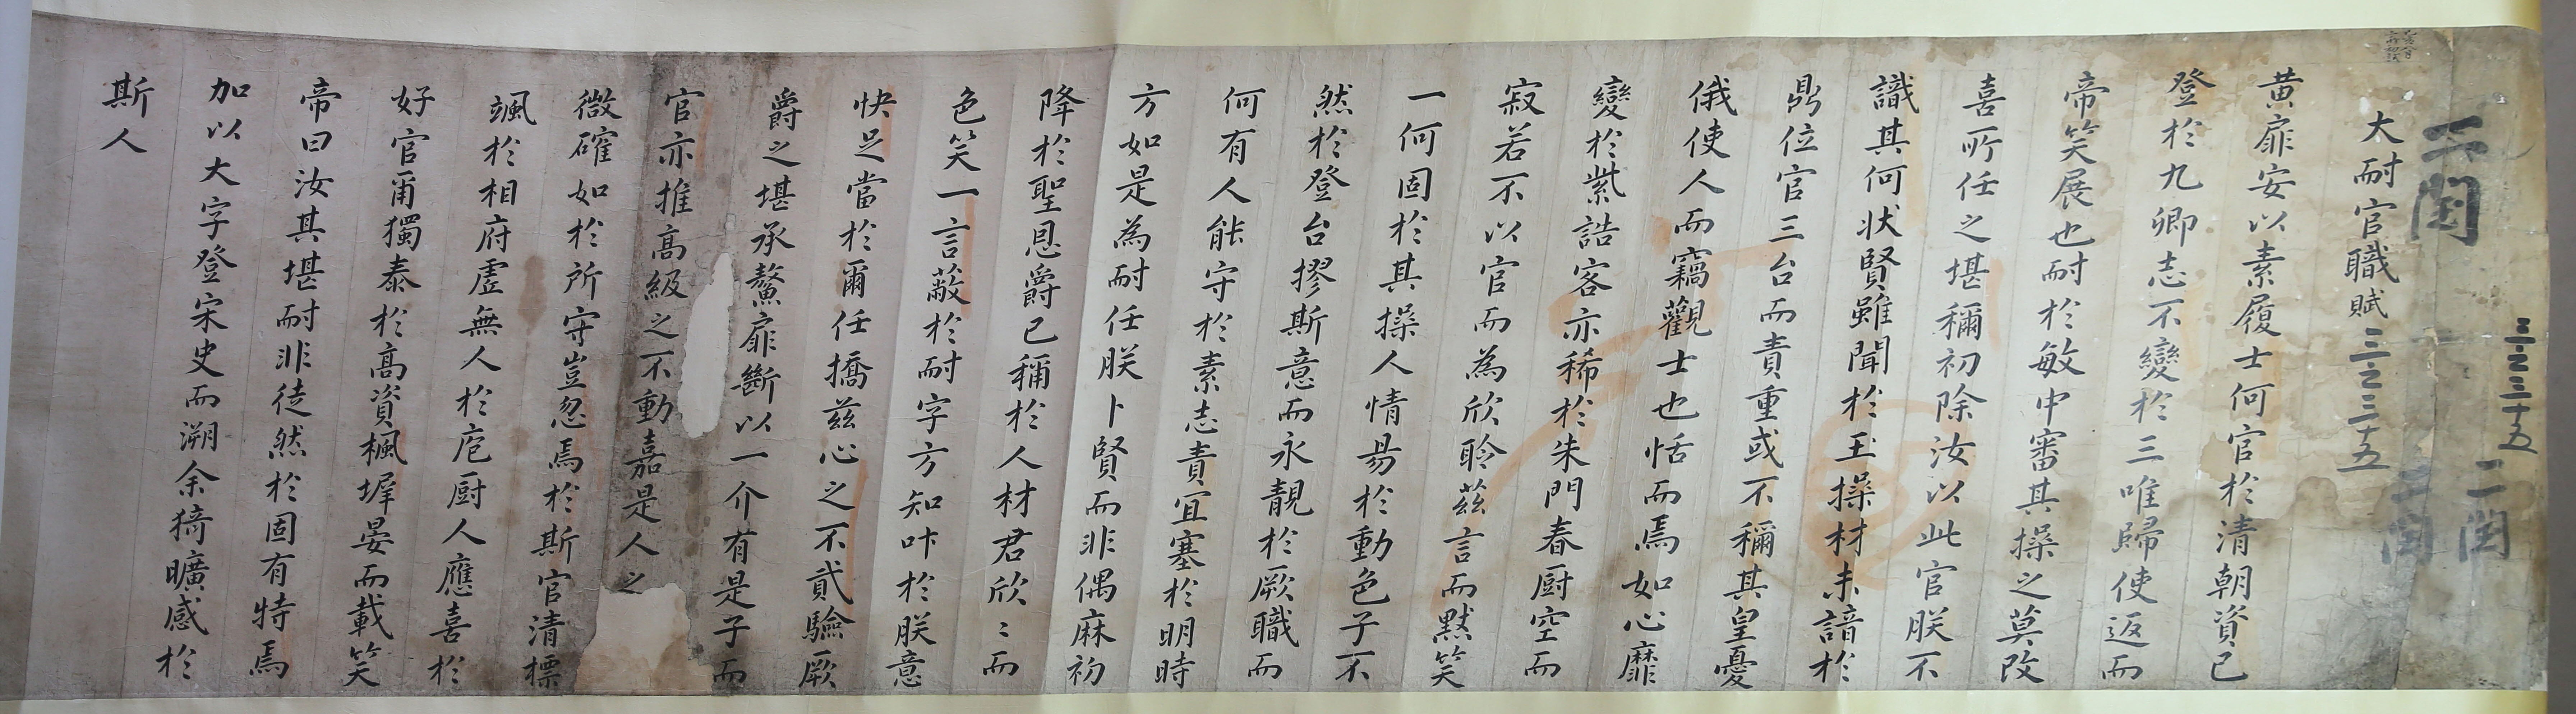 二閏
三之三十五
二閏
二閏
大耐官職賦 三之三十五
黄扉安以素履士何官於清朝資已
登於九卿志不變於三唯歸使返而
帝笑展也耐於敏中審其操之莫改
喜所任之堪稱初除汝以此官朕不
識其何狀賢雖聞於玉操材未諳於
鼎位官三台而責重或不稱其皇憂
俄使人而竊觀士也恬而焉如心靡
變於紫誥客亦稀於朱門春厨空而
寂若不以官而為欣聆茲言而黙笑
一何固於其操人情易於動色子不
然於登台摎斯意而永靚於厥職而
何有人能守於素志責宜塞於明時
方如是為耐任朕卜賢而非偶麻初
降於聖恩爵已稱於人材君欣〻而
色笑一言蔽於耐字方知咔於朕意
快足當於爾任撟茲心之不貳驗厥
爵之堪承鰲扉斷以一介有是子而
官亦推高級之不動嘉是人之
微確如於所守豈忽焉於斯官清標
颯於相府虛無人於庖厨人應喜於
好官甭獨泰於高資楓墀晏而載笑
帝曰汝其堪耐非徒然於固有特焉
加以大字登宋史而溯余猗曠感於
斯人